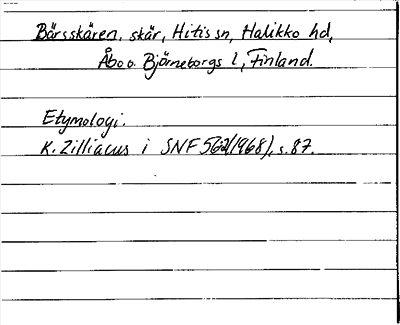 Bärsskären, skär, Hitis sn, Halikko hd,
Åbo o. Björneborgs l, Finland.
Etymologi.
K. Zilliacus i SNF (1968), s. 87.